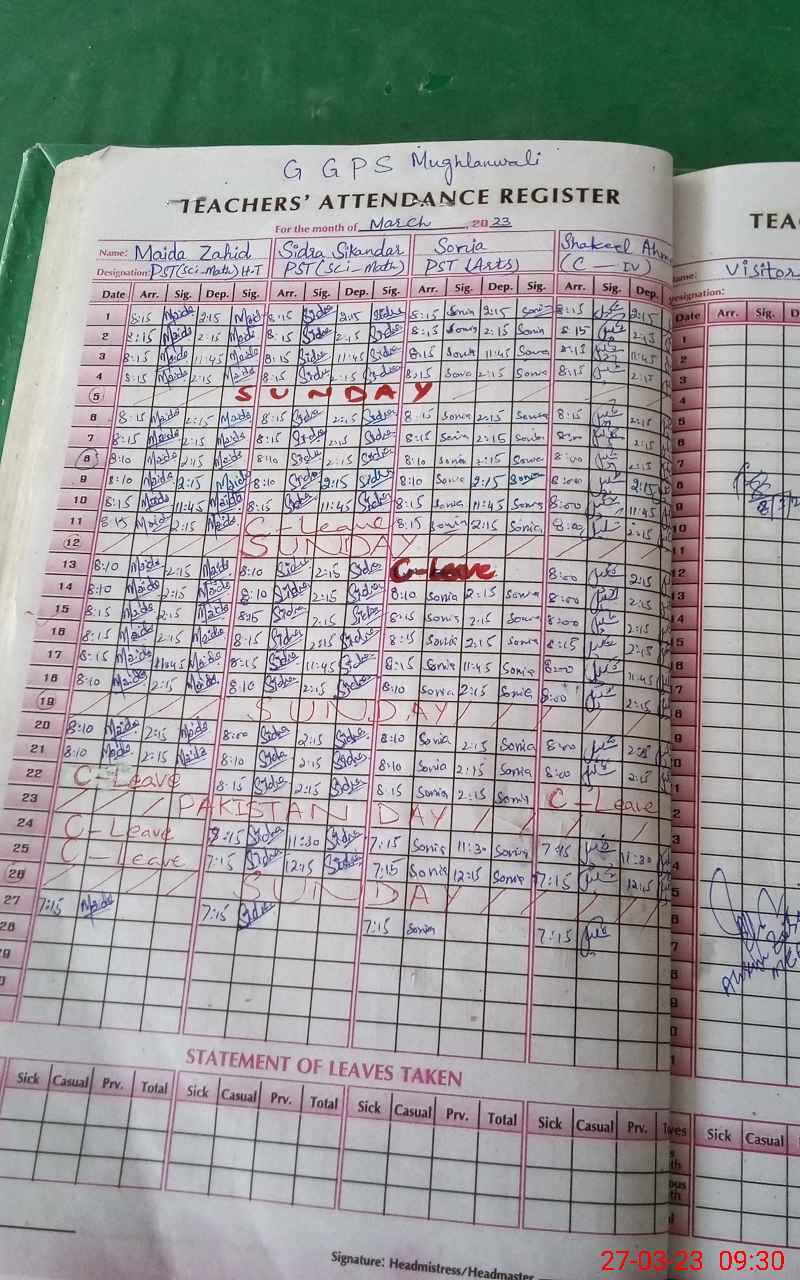 G GPS Mughlanwali
TEACHERS' ATTENDANCE REGISTER
For the month of March, 2023
Name: Maida Zahid Sidra Sikandar Sonia Shakeel Ahm
Designation: PST(Sci-Math) H-T PST (Sci-Math) PST (Arts) (C-IV)
Date Arr. Sig. Dep. Sig. Arr. Sig. Dep. Sig. Arr. Sig. Dep. Sig. Arr. Sig. Dep.
1 8:15 Maida 2:15 Maida 8:15 Sidra 2:15 Sidra 8:15 Sonia 2:15 Sonia 8:15 2:15
2 8:15 Maida 2:15 Maida 8:15 Sidra 2:15 Sidra 8:15 Sonia 2:15 Sonia 8:15 2:15
3 8:15 Maida 11:45 Maida 8:15 Sidra 11:45 Sidra 8:15 Sonia 11:45 Sonia 8:15 11:45
4 8:15 Maida 2:15 Maida 8:15 Sidra 2:15 Sidra 8:15 Sonia 2:15 Sonia 8:15 2:15
5 SUNDAY
6 8:15 Maida 2:15 Maida 8:15 Sidra 2:15 Sidra 8:15 Sonia 2:15 Sonia 8:15 2:15
7 8:15 Maida 2:15 Maida 8:15 Sidra 2:15 Sidra 8:15 Sonia 2:15 Sonia 8:00 2:15
8 8:10 Maida 2:15 Maida 8:10 Sidra 2:15 Sidra 8:10 Sonia 2:15 Sonia 8:00 2:15
9 8:10 Maida 2:15 Maida 8:10 Sidra 2:15 Sidra 8:10 Sonia 2:15 Sonia 8:00 2:15
10 8:15 Maida 11:45 Maida 8:15 Sidra 11:45 Sidra 8:15 Sonia 11:45 Sonia 8:00 11:45
11 8:15 Maida 2:15 Maida C-Leave 8:15 Sonia 2:15 Sonia 8:00 2:15
12 SUNDAY
13 8:10 Maida 2:15 Maida 8:10 Sidra 2:15 Sidra C-Leave 8:00 2:15
14 8:10 Maida 2:15 Maida 8:10 Sidra 2:15 Sidra 8:10 Sonia 2:15 Sonia 8:00 2:15
15 8:15 Maida 2:15 Maida 8:15 Sidra 2:15 Sidra 8:15 Sonia 2:15 Sonia 8:00 2:15
16 8:15 Maida 2:15 Maida 8:15 Sidra 2:15 Sidra 8:15 Sonia 2:15 Sonia 8:15 2:15
17 8:15 Maida 11:45 Maida 8:15 Sidra 11:45 Sidra 8:15 Sonia 11:45 Sonia 8:00 11:45
18 8:10 Maida 2:15 Maida 8:10 Sidra 2:15 Sidra 8:10 Sonia 2:15 Sonia 8:00 2:15
19 SUNDAY
20 8:10 Maida 2:15 Maida 8:00 Sidra 2:15 Sidra 8:10 Sonia 2:15 Sonia 8:00 2:15
21 8:10 Maida 2:15 Maida 8:10 Sidra 2:15 Sidra 8:10 Sonia 2:15 Sonia 8:00 2:15
22 C-Leave 8:15 Sidra 2:15 Sidra 8:15 Sonia 2:15 Sonia C-Leave
23 PAKISTAN DAY
24 C-Leave 7:15 Sidra 11:30 Sidra 7:15 Sonia 11:30 Sonia 7:15 11:30
25 C-Leave 7:15 Sidra 12:15 Sidra 7:15 Sonia 12:15 Sonia 7:15 12:15
26 SUNDAY
27 7:15 Maida 7:15 Sidra 7:15 Sonia 7:15
28
29
STATEMENT OF LEAVES TAKEN
Sick Casual Prv. Total Sick Casual Prv. Total Sick Casual Prv. Total Sick Casual Prv.
Signature: Headmistress/Headmaster
TEA
Visitor
Date Arr. Sig.
1
2
3
4
5
6
7
8
9
10
11
12
13
14
15
16
Sick Casual
27-03-23 09:30